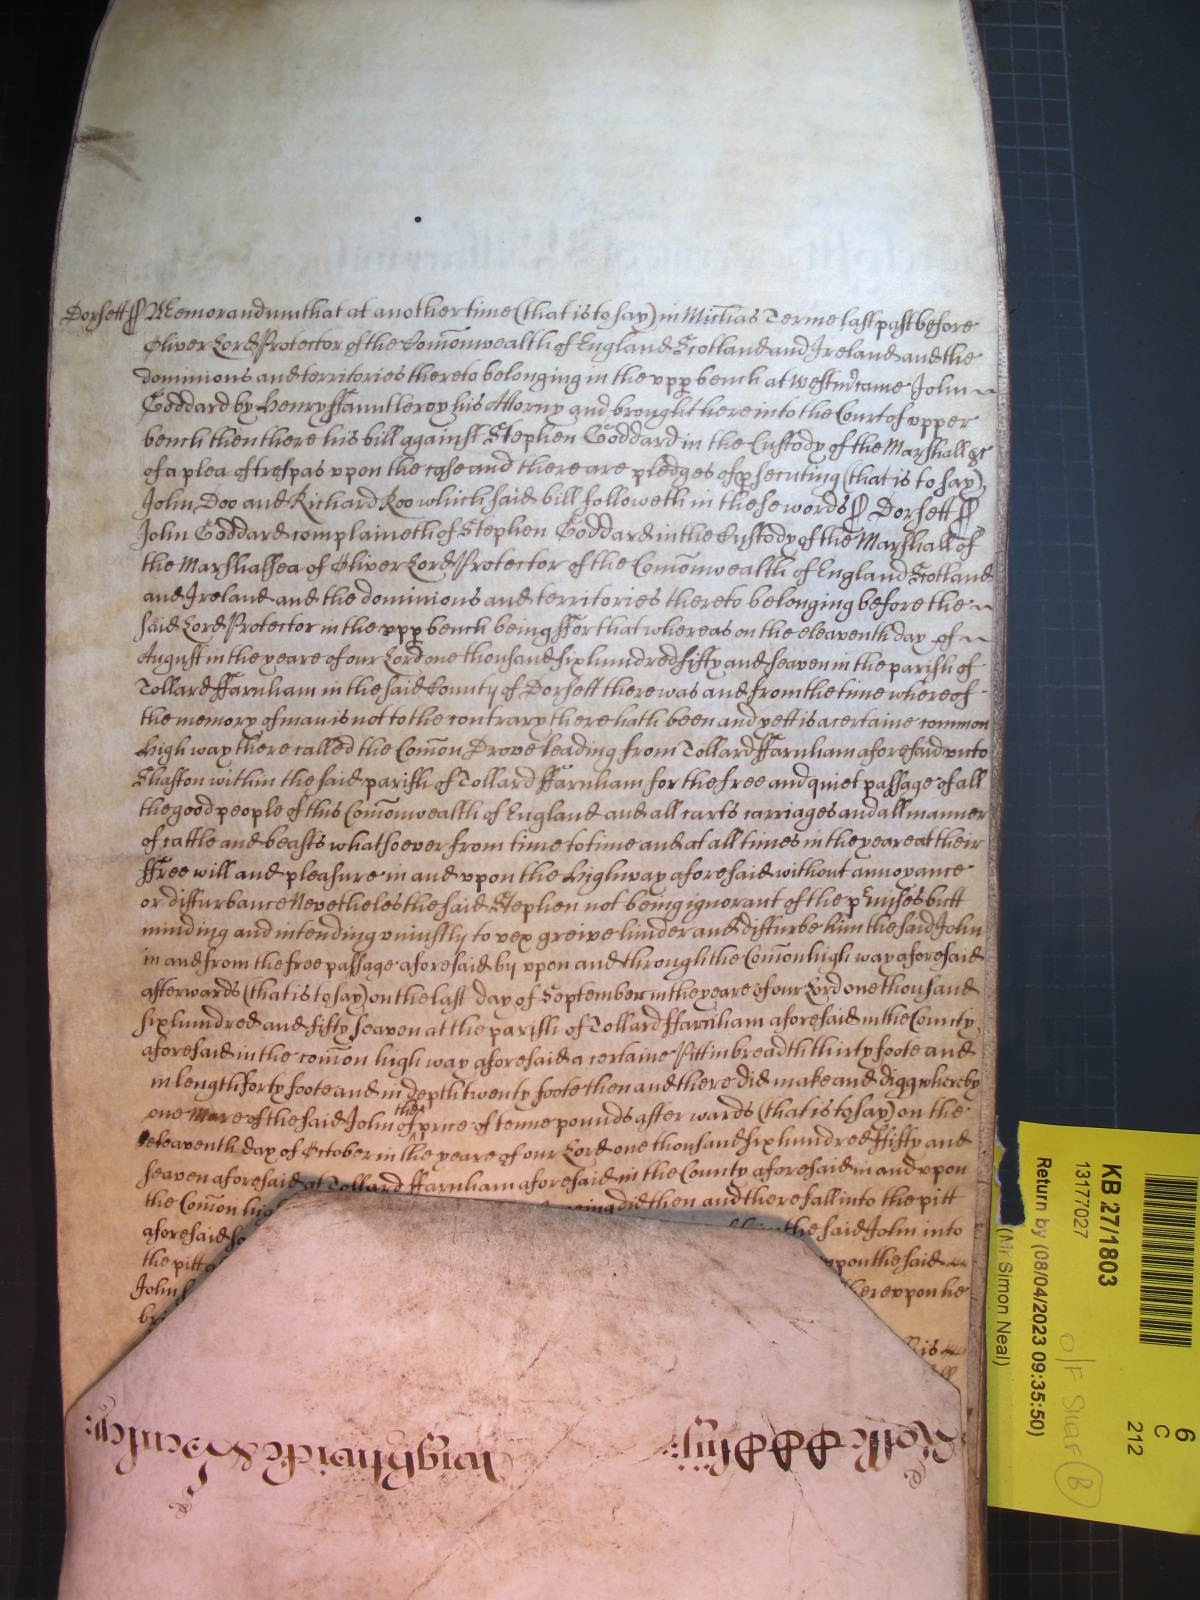 Dorsett ss Memorandum that at another time (that is to say) in Michas Terme last past before
Oliver Lord Protector of the Com̄onwealth of England Scotland and Ireland and the
dominions and territories thereto belonging in the upp bench at Westmr came John
Goddard by Henry ffauntleroy his Attorny and brought here into the Court of upper
bench then there his bill against Stephen Goddard in the Custody of the Marshall &c
of a plea of trespas upon the case and there are pledges of psecuting (that is to say)
John Doo and Richard Roo which said bill followeth in these words ss Dorsett ss
John Goddard complaineth of Stephen Goddard in the Custody of the Marshall of
the Marshallsea of Oliver Lord Protector of the Com̄onwealth of England Scotland
and Ireland and the dominions and territories thereto belonging before the
said Lord Protector in the upp bench being ffor that whereas on the eleaventh day of
August in the yeare of our Lord one thousand six hundred fifty and seaven in the parish of
Tollard ffarnham in the said County of Dorsett there was and from the time whereof
the memory of man is not to the contrary there hath been and yett is a certaine common
high way there called the Com̄on Drove leading from Tollard ffarnham aforesaid unto
Shafton within the said parish of Tollard ffarnham for the free and quiet passage of all
the good people of this Com̄onwealth of England and all carts carriages and all manner
of cattle and beasts whatsoever from time to time and at all times in the yeare at their
ffree will and pleasure in and upon the Highway aforesaid without annoyance
or disturbance Nevetheles the said Stephen not being ignorant of the pmises butt
minding and intending uniustly to vex greive hinder and disturbe him the said John
in and from the free passage aforesaid by upon and through the Com̄on high way aforesaid
afterwards (that is to say) on the last day of September in the yeare of our Lord one thousand
six hundred and fifty seaven at the parish of Tollard ffarnham aforesaid in the County
aforesaid in the com̄on high way aforesaid a certaine Pitt in breadth thirty foote and
in length forty foote and in depth twenty foote then and there did make and digg whereby
one Mare of the said John of the price of tenne pounds after wards (that is to say) on the
eleaventh day of October in the yeare of our Lord one thousand six hundred ffifty and
seaven aforesaid at Tollard ffarnham aforesaid in the County aforesaid in and upon
the Com̄on did then and there fall into the pitt
aforesaid the said John into
the pitt upon the said
John hereupon he
his
Rolle
KB 27/1803
13177027
Return by (08/04/2023 09:35:50)
(Mr Simon Neal)
O/F Shar B
6
C
212